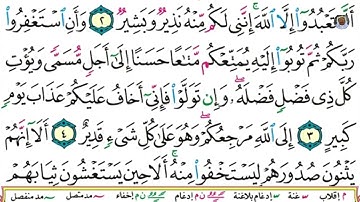 تَعۡبُدُوٓاْ إِلَّا ٱللَّهَۚ إِنَّنِي لَكُم مِّنۡهُ نَذِيرٞ وَبَشِيرٞ ٢ وَأَنِ ٱسۡتَغۡفِرُواْ
رَبَّكُمۡ ثُمَّ تُوبُوٓاْ إِلَيۡهِ يُمَتِّعۡكُم مَّتَٰعًا حَسَنًا إِلَىٰٓ أَجَلٖ مُّسَمّٗى وَيُؤۡتِ
كُلَّ ذِي فَضۡلٖ فَضۡلَهُۥۖ وَإِن تَوَلَّوۡاْ فَإِنِّيٓ أَخَافُ عَلَيۡكُمۡ عَذَابَ يَوۡمٖ
كَبِيرٍ ٣ إِلَى ٱللَّهِ مَرۡجِعُكُمۡۖ وَهُوَ عَلَىٰ كُلِّ شَيۡءٖ قَدِيرٌ ٤ أَلَآ إِنَّهُمۡ
يَثۡنُونَ صُدُورَهُمۡ لِيَسۡتَخۡفُواْ مِنۡهُۚ أَلَا حِينَ يَسۡتَغۡشُونَ ثِيَابَهُمۡ
م إقلاب غنة إدغام بلاغنة ن م إدغام ن م إخفاء مد متصل مد منفصل